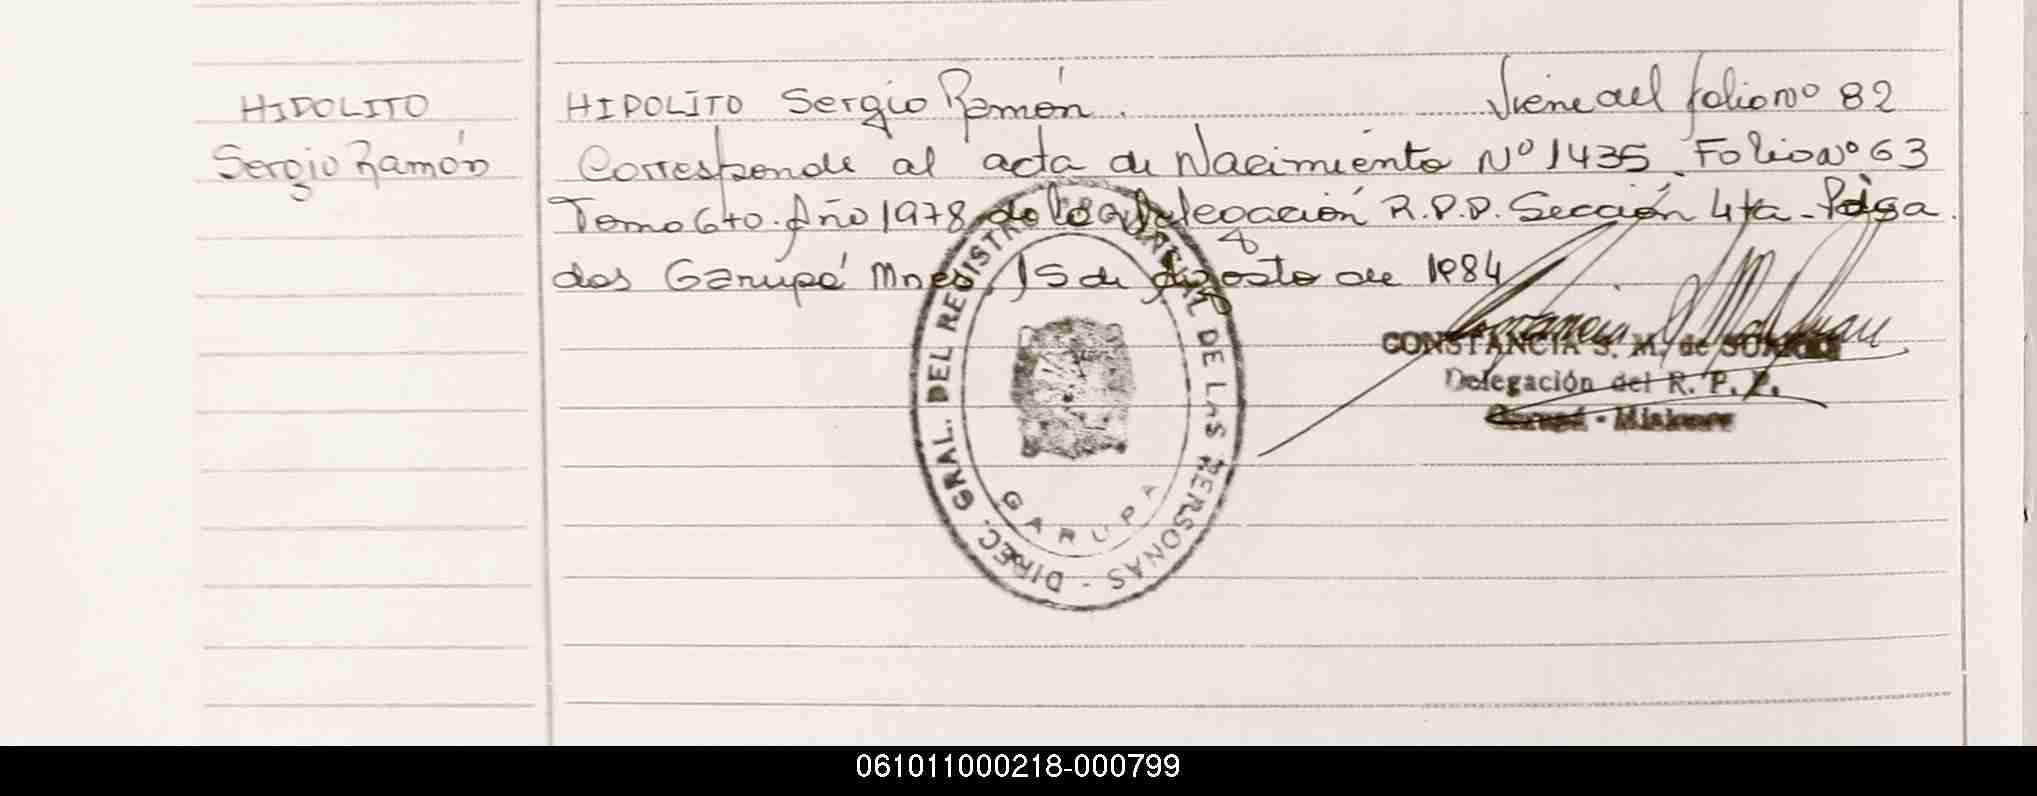 HIPOLITO
Sergio Ramón
HIPOLITO Sergio Ramón. Viene del folio nº 82
Corresponde al acta de Nacimiento Nº 1435 Folio Nº 63
Tomo 6to. Año 1978 de la Delegación R.P.P. Sección 4ta - Posa
das Garupá Mnes, 15 de Agosto de 1984
DIREC. GRAL. DEL REGISTRO DE LAS PERSONAS -
GARUPA
CONSTANCIA S. M. de
Delegación del R. P. P.
Garupá - Misiones
061011000218-000799